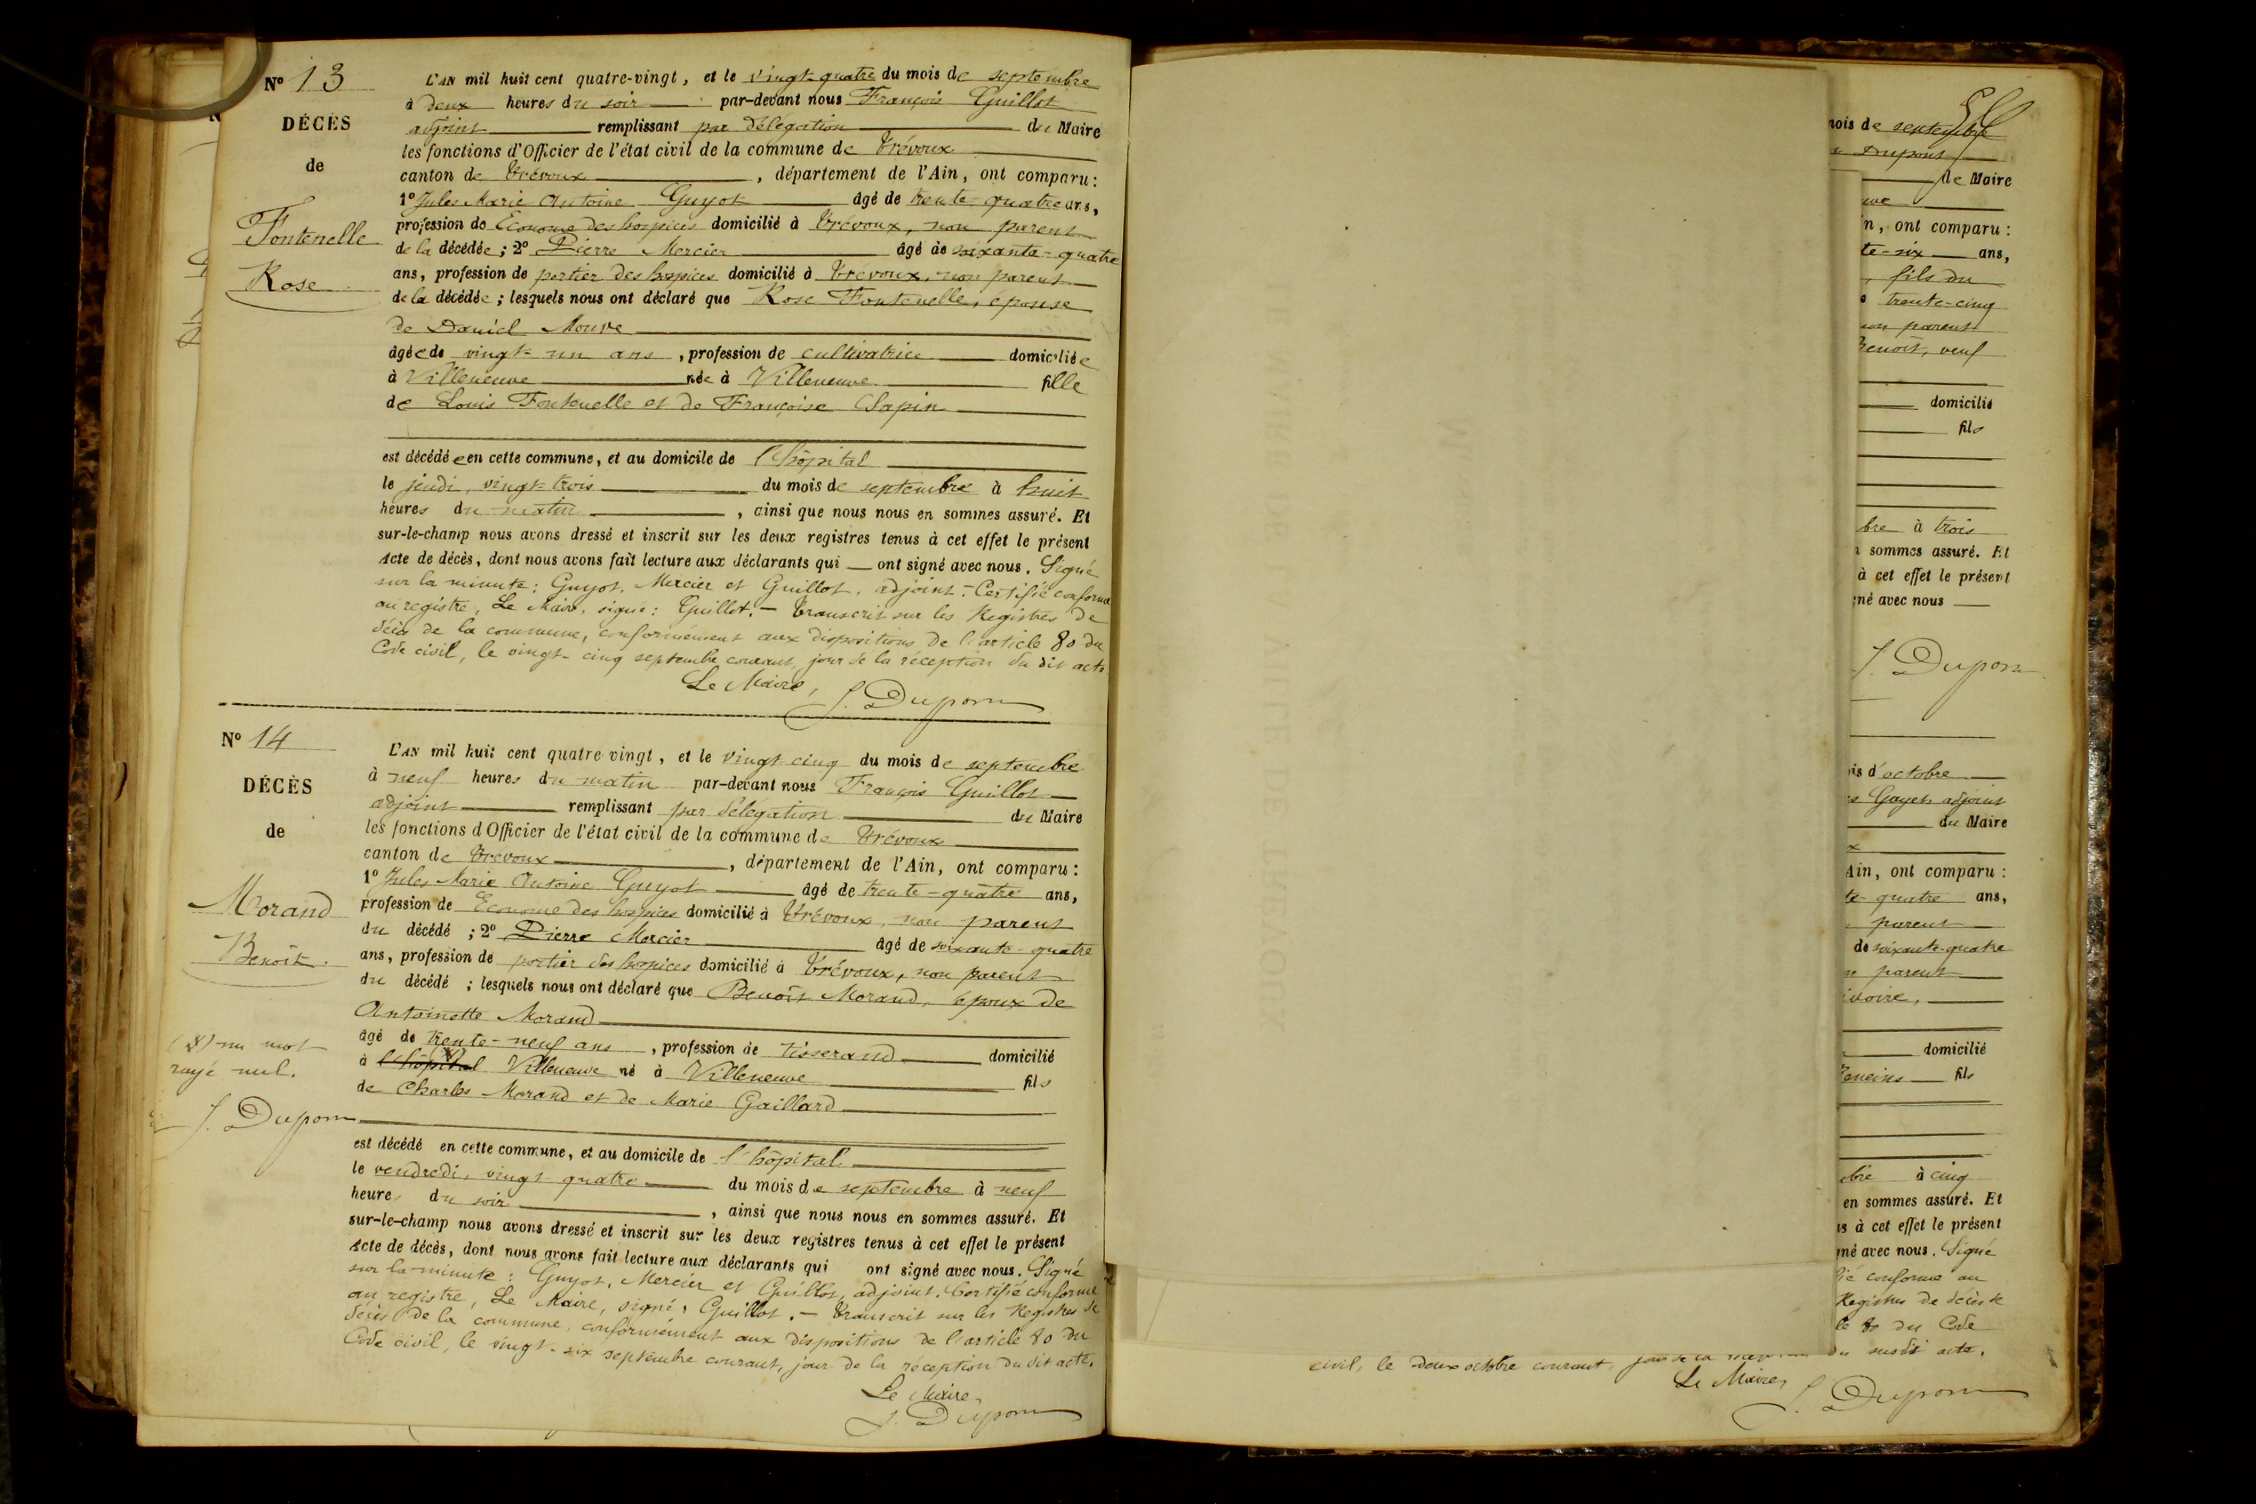 Nº 13
DÉCÈS
de
Fontenelle
Rose
L'AN mil huit cent quatre-vingt, et le vingt-quatre du mois de septembre
à deux heures du soir par-devant nous François Guillot
adjoint remplissant par délégation du Maire
les fonctions d'Officier de l'état civil de la commune de Trévoux
canton de Trévoux, département de l'Ain, ont comparu :
1º Jules Marie Antoine Guyot âgé de trente-quatre ans,
profession de Econome des hospices domicilié à Trévoux, non parent
de la décédée ; 2º Pierre Mercier âgé de soixante-quatre
ans, profession de portier des hospices domicilié à Trévoux, non parent
de la décédée ; lesquels nous ont déclaré que Rose Fontenelle, épouse
de Daniel
âgée de vingt-un ans, profession de cultivatrice domiciliée
à Villeneuve née à Villeneuve fille
de Louis Fontenelle et de Françoise Sapin
est décédée en cette commune, et au domicile de l'hôpital
le jeudi, vingt-trois du mois de septembre à huit
heures du matin, ainsi que nous nous en sommes assuré. Et
sur-le-champ nous avons dressé et inscrit sur les deux registres tenus à cet effet le présent
Acte de décès, dont nous avons fait lecture aux déclarants qui — ont signé avec nous. Signé
sur la minute : Guyot, Mercier et Guillot, adjoint. — Certifié conforme
au registre, Le Maire, signé : Guillot. — Transcrit sur les Registres de
décès de la commune, conformément aux dispositions de l'article 80 du
Code civil, le vingt-cinq septembre courant, jour de la réception du dit acte
Le Maire,
J. Dupont
Nº 14
DÉCÈS
de
Morand
Benoît.
(x) un mot
rayé nul.
J. Dupont
L'AN mil huit cent quatre vingt, et le vingt cinq du mois de septembre
à neuf heures du matin par-devant nous François Guillot
adjoint remplissant par délégation du Maire
les fonctions d'Officier de l'état civil de la commune de Trévoux
canton de Trévoux, département de l'Ain, ont comparu :
1º Jules Marie Antoine Guyot âgé de trente-quatre ans,
profession de Econome des hospices domicilié à Trévoux, non parent
du décédé ; 2º Pierre Mercier âgé de soixante-quatre
ans, profession de portier des hospices domicilié à Trévoux, non parent
du décédé ; lesquels nous ont déclaré que Benoît Morand, époux de
Antoinette Morand
âgé de trente-neuf ans, profession de tisserand domicilié
à l'hôpital (x) Villeneuve né à Villeneuve fils
de Charles Morand et de Marie Gaillard
est décédé en cette commune, et au domicile de l'hôpital
le vendredi, vingt-quatre du mois de septembre à neuf
heures du soir, ainsi que nous nous en sommes assuré. Et
sur-le-champ nous avons dressé et inscrit sur les deux registres tenus à cet effet le présent
Acte de décès, dont nous avons fait lecture aux déclarants qui ont signé avec nous. Signé
sur la minute : Guyot, Mercier et Guillot, adjoint. Certifié conforme
au registre, Le Maire, signé : Guillot. — Transcrit sur les Registres de
décès de la commune, conformément aux dispositions de l'article 80 du
Code civil, le vingt-six septembre courant, jour de la réception du dit acte.
Le Maire,
J. Dupont
mois de septembre
Dupont
de Maire
n, ont comparu :
te-six ans,
, fils du
trente-cinq
non parent
Benoît, veuf
domicilié
fils
bre à trois
sommes assuré. Et
à cet effet le présent
gné avec nous
J. Dupont
is d'octobre
Gayet, adjoint
du Maire
x
Ain, ont comparu :
te-quatre ans,
parent
de soixante-quatre
parent
ivoire,
domicilié
eneins fils
bre à cinq
en sommes assuré. Et
s à cet effet le présent
gné avec nous. Signé
ié conforme au
Registres de décès de
le 80 du Code
civil, le deux octobre courant, du susdit acte.
Le Maire,
J. Dupont